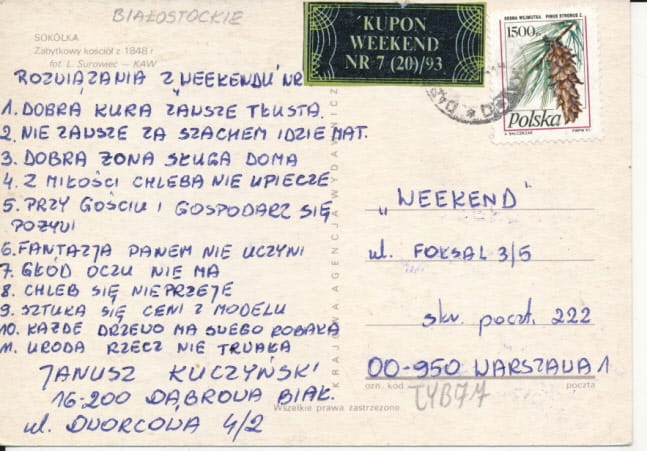 BIAŁOSTOCKIE
SOKÓŁKA
Zabytkowy kościół z 1848 r
fot. L. Surowiec — KAW
KUPON
WEEKEND
NR 7 (20)/93
SOSNA WEJMUTKA PINUS STROBUS L.
1500 zł
Polska
ROZWIĄZANIA Z "WEEKENDU" NR
1. DOBRA KURA ZAWSZE TŁUSTA.
2. NIE ZAWSZE ZA SZACHEM IDZIE MAT.
3. DOBRA ŻONA SŁUGA DOMA
4. Z MIŁOŚCI CHLEBA NIE UPIECZE
5. PRZY GOŚCIU I GOSPODARZ SIĘ
POŻYWI
6. FANTAZJA PANEM NIE UCZYNI
7. GŁÓD OCZU NIE MA
8. CHLEB SIĘ NIEPRZEJE
9. SZTUKA SIĘ CENI Z MODELU
10. KAŻDE DRZEWO MA SWEGO ROBAKA
11. URODA RZECZ NIE TRWAŁA
JANUSZ KUCZYŃSKI
16-200 DĄBROWA BIAŁ.
ul. DWORCOWA 4/2
KRAJOWA AGENCJA WYDAWNICZA
„WEEKEND"
ul. FOKSAL 3/5
skr. poczt. 222
00-950 WARSZAWA 1
ozn. kod. poczta
Wszelkie prawa zastrzeżone